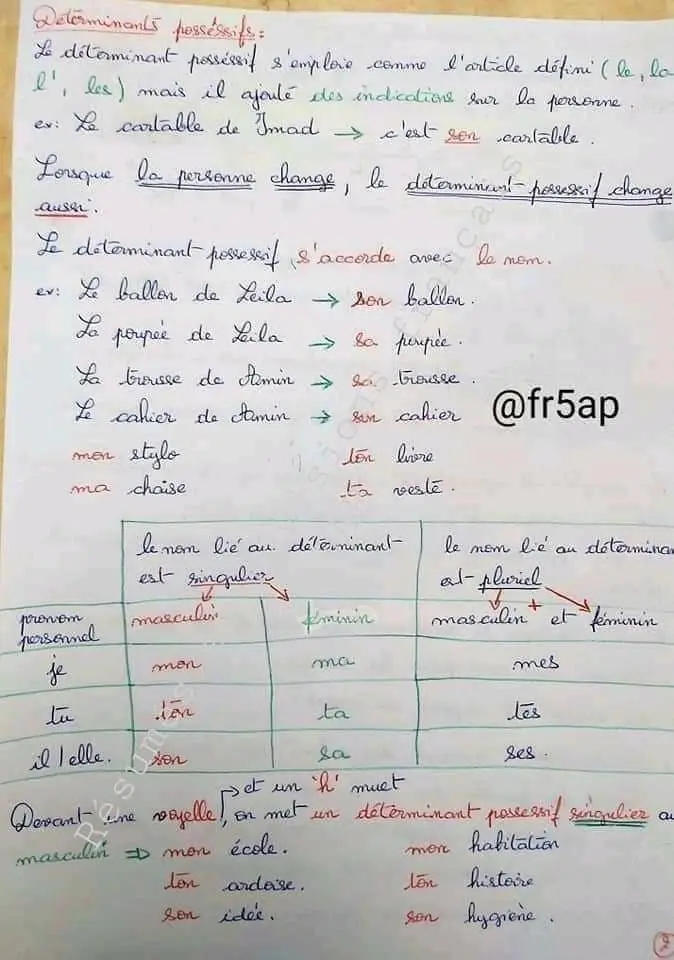 Déterminants possessifs:
Le déterminant possessif s'emploie comme l'article défini (le, la
l', les) mais il ajouté des indications sur la personne.
ex: Le cartable de Imad → c'est son cartable.
Lorsque la personne change, le déterminant possessif change
aussi.
Le déterminant possessif s'accorde avec le nom.
ex: Le ballon de Leila → son ballon.
La poupée de Leila → sa poupée.
La trousse de Amin → sa trousse.
Le cahier de Amin → son cahier
@fr5ap
mon stylo ton livre
ma chaise ta veste.
le nom lié au déterminant le nom lié au détermina
est singulier est pluriel
pronom personnel masculin féminin masculin + et féminin
je mon ma mes
tu ton ta tes
il / elle. son sa ses.
et un 'h' muet
Devant une voyelle, on met un déterminant possessif singulier au
masculin ⇒ mon école. mon habitation
ton ardoise. ton histoire
son idée. son hygiène.
2